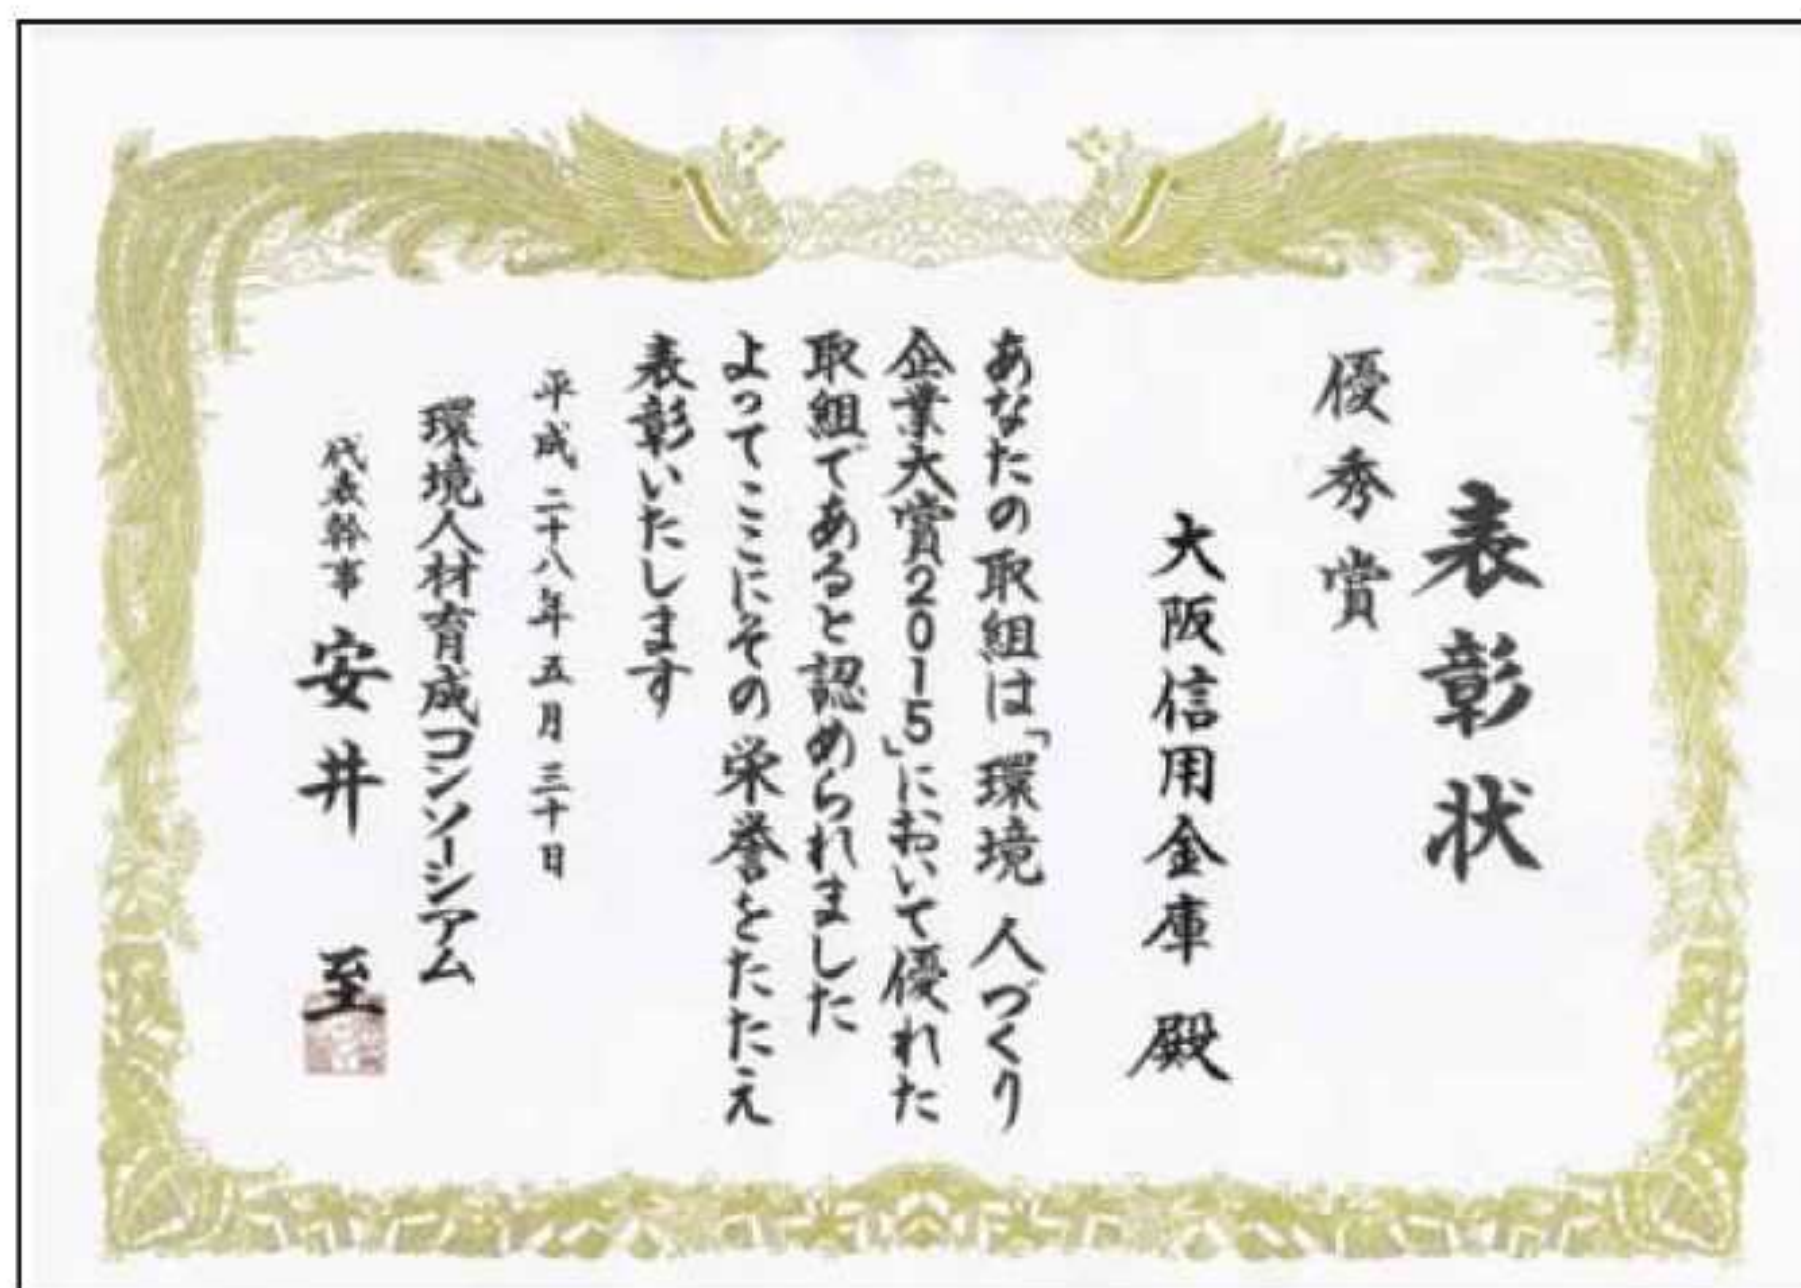 表彰状
優秀賞
大阪信用金庫 殿
あなたの取組は「環境 人づくり
企業大賞2015」において優れた
取組であると認められました
よってここにその栄誉をたたえ
表彰いたします
平成二十八年五月三十日
環境人材育成コンソーシアム
代表幹事 安井 至